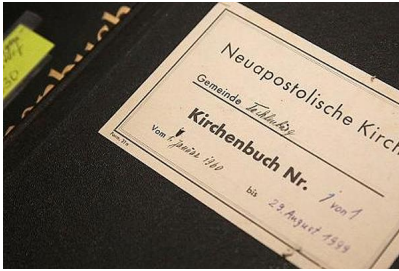 Neuapostolische Kirch
Gemeinde Tecklenburg
Kirchenbuch Nr. 1 von 1
Vom 1. Januar 1960
bis 29. August 1999
Form. 21a
enbuch